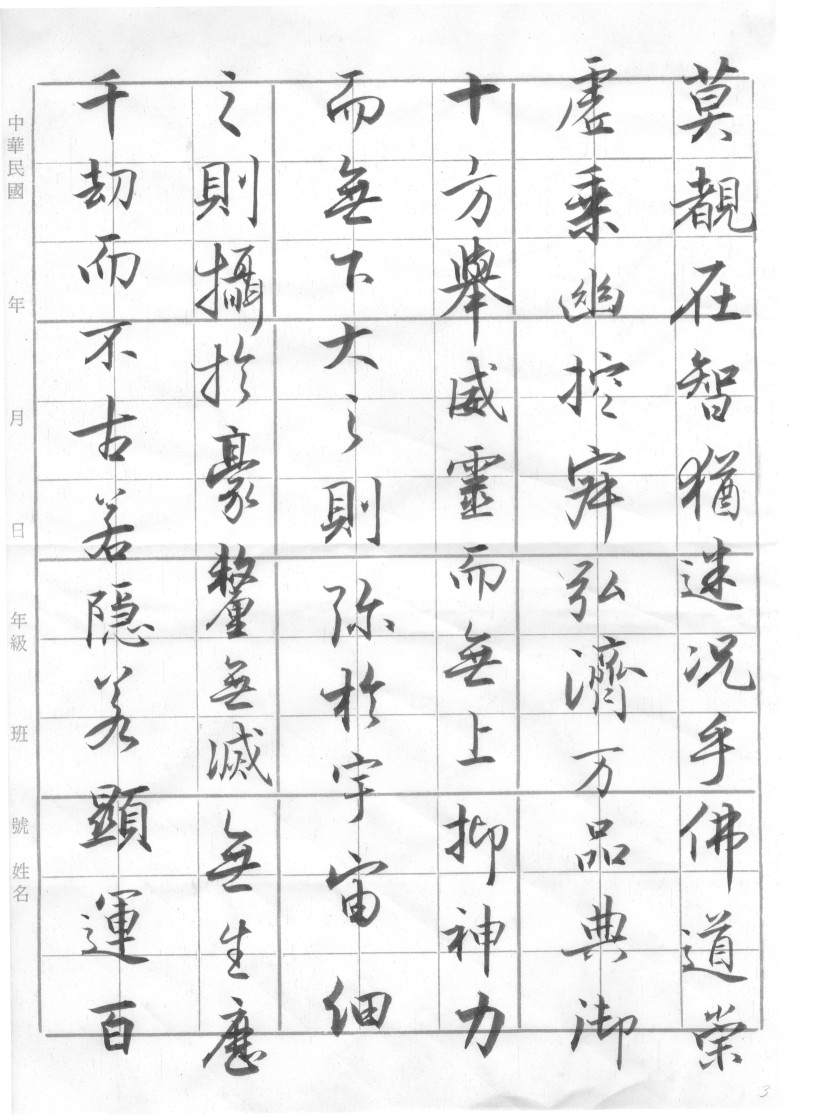 莫覩在智猶迷况乎佛道崇
虛乘幽控寂弘濟万品典御
十方舉威靈而無上抑神力
而無下大之則弥於宇宙細
之則攝於豪釐無滅無生歷
千劫而不古若隱若顯運百
中華民國 年 月 日 年級 班 號 姓名
3